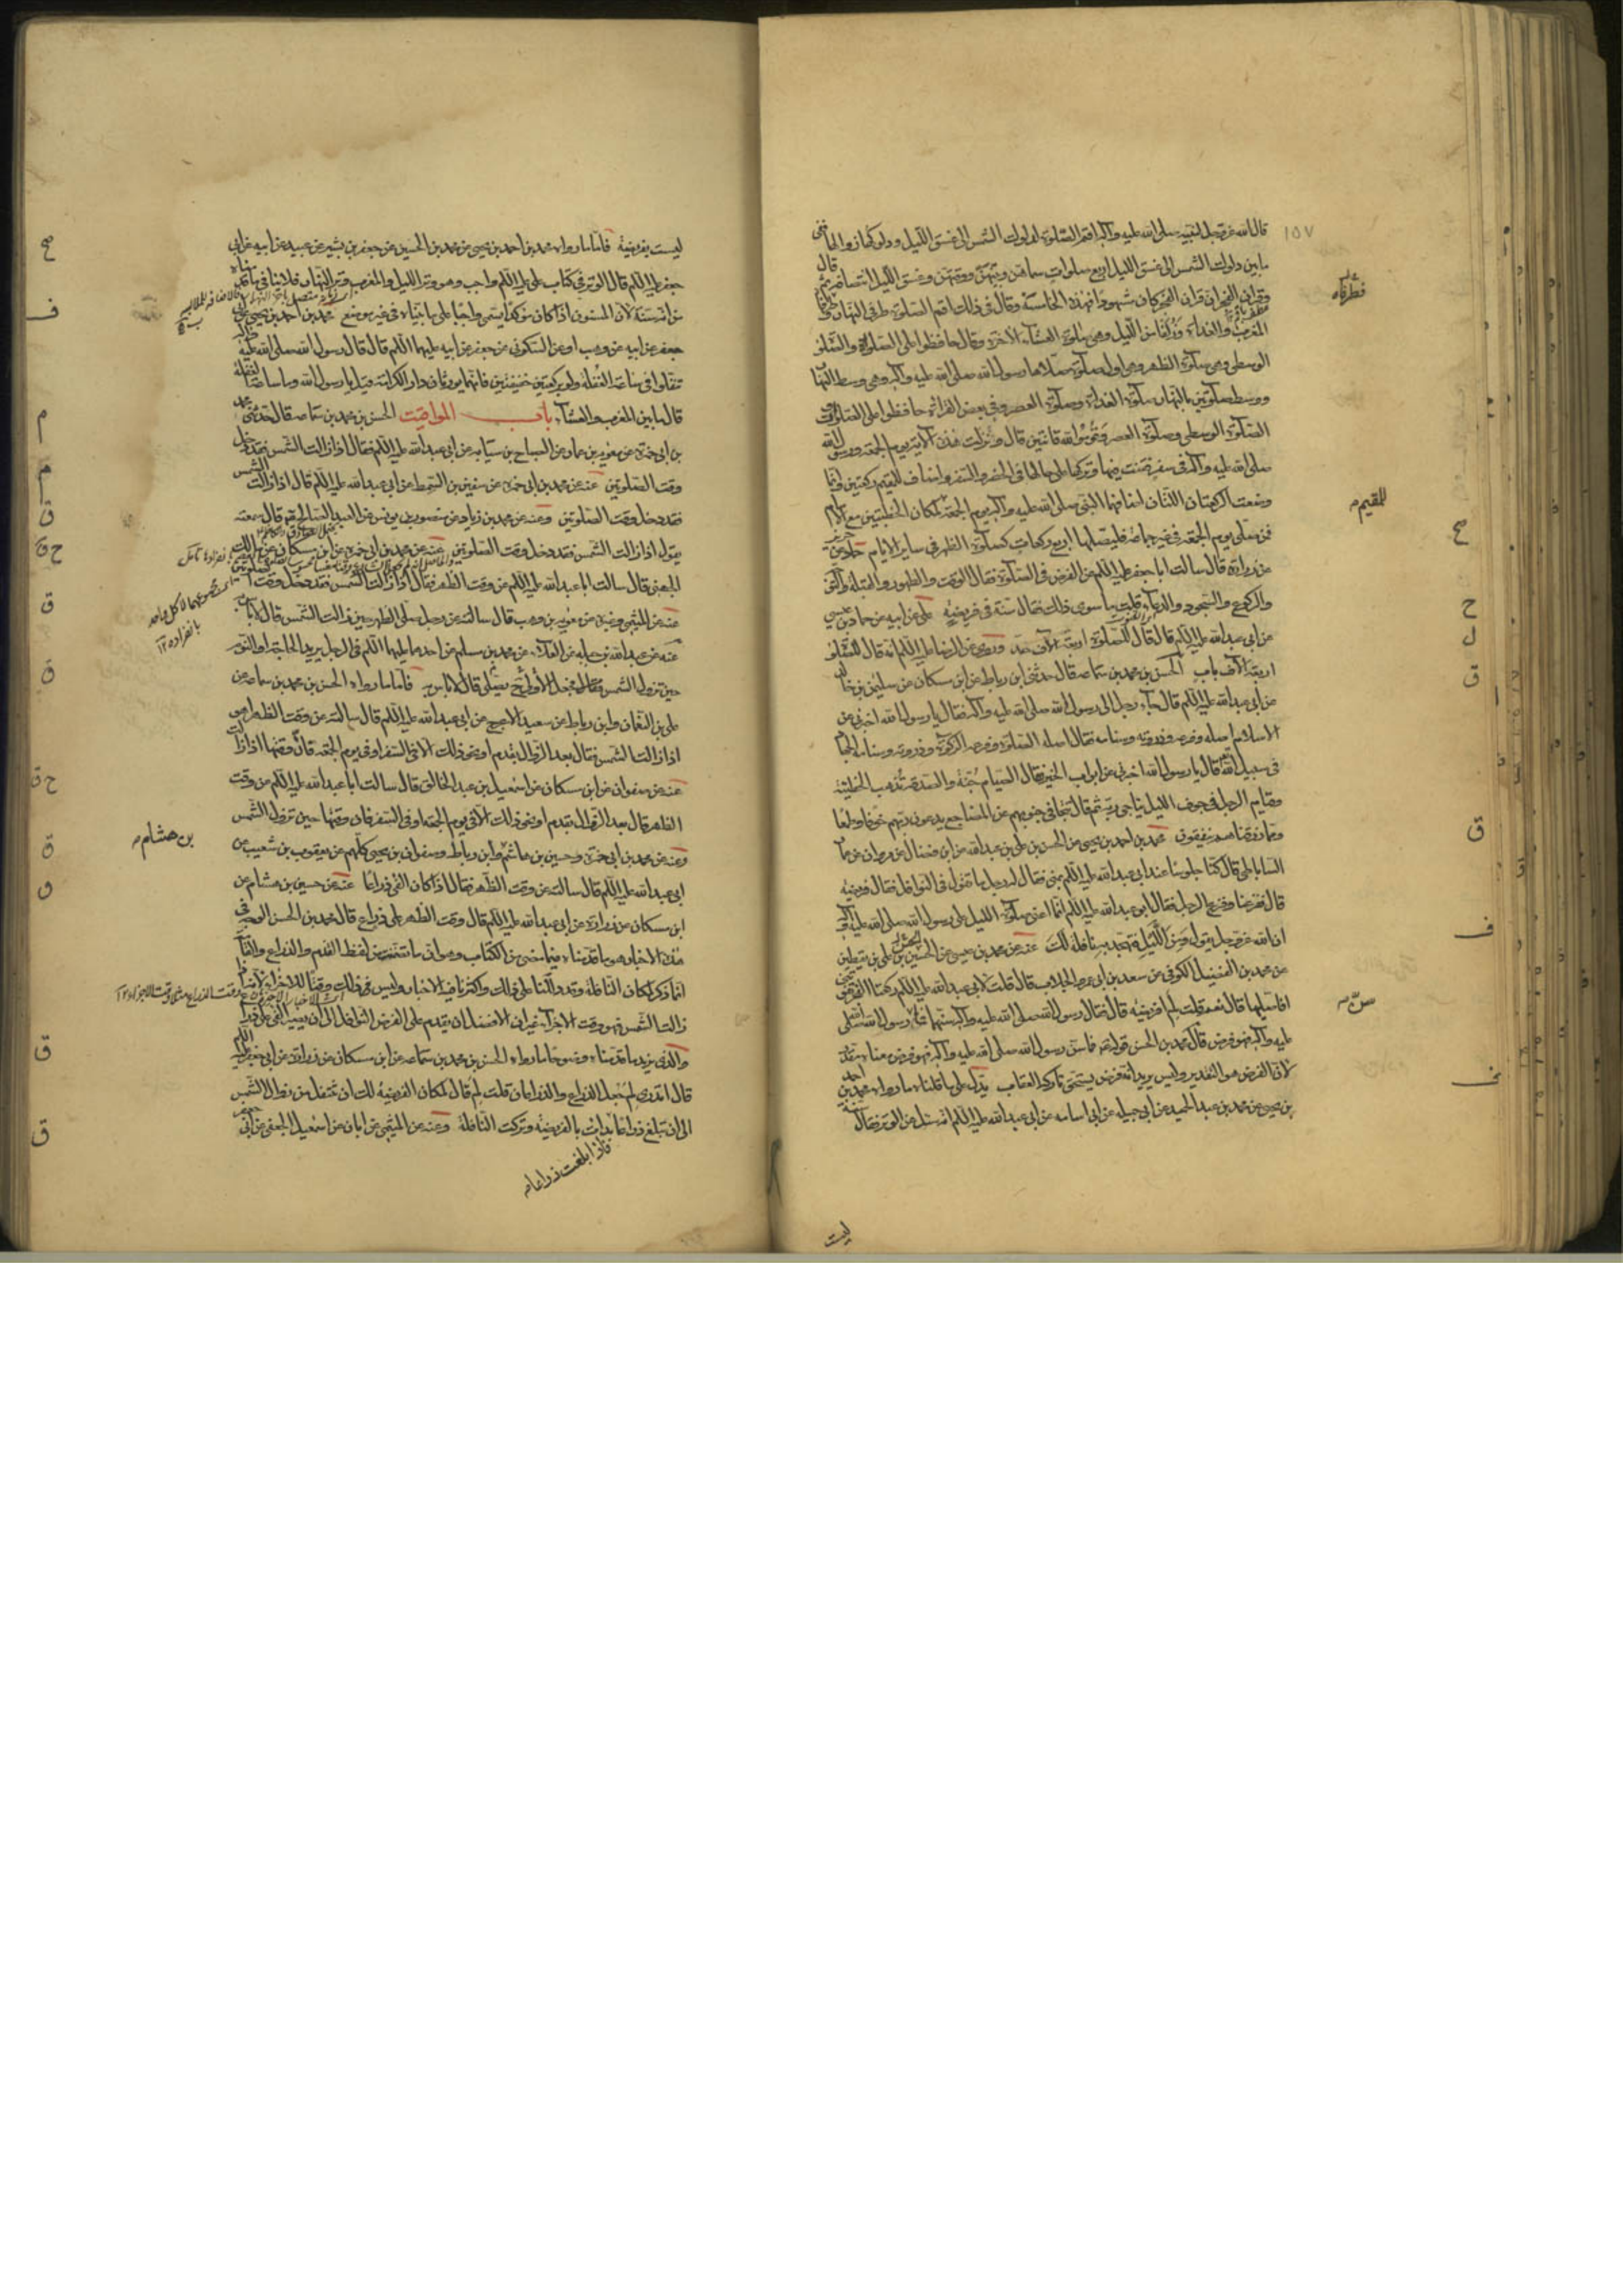 قال الله عز وجل لنبيه صلى الله عليه وآله اقم الصلوة لدلوك الشمس الى غسق الليل ودلوكها زوالها ففي
ما بين دلوك الشمس الى غسق الليل اربع صلوات سماهن وبينهن ووقتهن وغسق الليل انتصافه ثم قال
وقران الفجر ان قران الفجر كان مشهودا فهذه الخامسة وقال في ذلك اقم الصلوة طرفي النهار طرفاه
المغرب والغداة وزلفا من الليل وهي صلوة العشاء الاخرة وقال حافظوا على الصلوات والصلوة
الوسطى وهي صلوة الظهر وهي اول صلوة صلاها رسول الله صلى الله عليه وآله وهي وسط النهار
ووسط صلوتين بالنهار صلوة الغداة وصلوة العصر وفي بعض القراءة حافظوا على الصلوات
الصلوة الوسطى وصلوة العصر وقوموا لله قانتين قال ونزلت هذه الاية يوم الجمعة ورسول الله
صلى الله عليه وآله في سفر فقنت فيها وتركها على حالها في الحضر والسفر واضاف للمقيم ركعتين وانما
وضعت الركعتان اللتان اضافهما النبي صلى الله عليه وآله يوم الجمعة لمكان الخطبتين مع الامام
فمن صلى يوم الجمعة في غير جماعة فليصلها اربع ركعات كصلوة الظهر في ساير الايام حماد عن حريز
عن زرارة قال سالت ابا جعفر عليه السلم عن الفرض في الصلوة فقال الوقت والطهور والقبلة والتوجه
والركوع والسجود والدعاء قلت ما سوى ذلك فقال سنة في فريضة علي عن ابيه عن حماد بن عيسى
عن ابي عبد الله عليه السلم قال قال للصلوة اربعة الاف حد وروى عن الرضا عليه السلم انه قال للصلوة
اربعة الاف باب الحسن بن محمد بن سماعه قال حدثني ابن رباط عن ابن مسكان عن سليمن بن خالد
عن ابي عبد الله عليه السلم قال جاء رجل الى رسول الله صلى الله عليه وآله فقال يا رسول الله اخبرني عن
الاسلام اصله وفرعه وذروته وسنامه فقال اصله الصلوة وفرعه الزكوة وذروته وسنامه الجهاد
في سبيل الله قال يا رسول الله اخبرني عن ابواب الخير فقال الصيام جنة والصدقة تذهب الخطيئة
وقيام الرجل في جوف الليل يناجي ربه ثم قال تتجافى جنوبهم عن المضاجع يدعون ربهم خوفا وطمعا
ومما رزقناهم ينفقون محمد بن احمد بن يحيى عن الحسن بن علي بن عبد الله عن ابن فضال عن مروان عن عمار
الساباطي قال كنا جلوسا عند ابي عبد الله عليه السلم بمنى فقال له رجل ما تقول في النوافل فقال فريضة
قال ففزعنا وفزع الرجل فقال ابو عبد الله عليه السلم انما اعني صلوة الليل على رسول الله صلى الله عليه وآله
ان الله عز وجل يقول ومن الليل فتهجد به نافلة لك عنه عن محمد بن عيسى عن الحسين بن علي بن يقطين
عن محمد بن الفضيل الكوفي عن سعد بن ابي عمرو الجلاب قال قلت لابي عبد الله عليه السلم ركعتا الفجر
افاصليهما قال نعم قلت لم افريضة قال فقال رسول الله صلى الله عليه وآله سنهما فما سن رسول الله صلى
عليه وآله فهو فرض قال محمد بن الحسن قوله فما سن رسول الله صلى الله عليه وآله فهو فرض معناه مقدر
لان الفرض هو التقدير وليس يريد انه فرض يستحق تاركه العقاب يدل على ما قلناه ما رواه محمد بن احمد
بن يحيى عن محمد بن عبد الحميد عن ابي جميله عن ابي اسامه عن ابي عبد الله عليه السلم انه سئل عن الوتر فقال سنة
ليست
١٥٧
للمقيم
ليست بفريضة فاما ما رواه محمد بن احمد بن يحيى عن محمد بن الحسين عن جعفر بن بشير عن عبيد عن ابيه عن ابي
جعفر عليه السلم قال الوتر في كتاب علي عليه السلم واجب وهو وتر الليل والمغرب وتر النهار فلا ينافي ما قدمناه
من انه سنة لان المسنون اذا كان مؤكدا يسمى واجبا على ما بيناه في غير موضع محمد بن احمد بن يحيى عن ابي
جعفر عن ابيه عن وهب او عن السكوني عن جعفر عن ابيه عليهما السلم قال قال رسول الله صلى الله عليه وآله
تنفلوا في ساعة الغفلة ولو بركعتين خفيفتين فانهما يورثان دار الكرامة قيل يا رسول الله وما ساعة الغفلة
قال ما بين المغرب والعشاء باب المواقيت الحسن بن محمد بن سماعه قال حدثني محمد
بن ابي حمزة عن معوية بن عمار عن الصباح بن سيابه عن ابي عبد الله عليه السلم فقال اذا زالت الشمس فقد دخل
وقت الصلوتين عنه عن محمد بن ابي حمزة عن سفين بن السمط عن ابي عبد الله عليه السلم قال اذا زالت الشمس
فقد دخل وقت الصلوتين وعنه عن محمد بن زياد عن منصور بن يونس عن العبد الصالح قال سمعته
يقول اذا زالت الشمس فقد دخل وقت الصلوتين عنه عن محمد بن ابي حمزة عن ابن مسكان عن مالك
الجهني قال سالت ابا عبد الله عليه السلم عن وقت الظهر فقال اذا زالت الشمس فقد دخل وقت الصلوتين
عنه عن الميثمي وغيره عن معوية بن وهب قال سالته عن رجل صلى الظهر حين زالت الشمس قال لا باس به
عنه عن عبد الله بن جبله عن العلاء عن محمد بن مسلم عن احدهما عليهما السلم في الرجل يريد الحاجة او النوم
حين تزول الشمس فجعل يصلي الاولى ح يصلي قال لا باس به فاما ما رواه الحسن بن محمد بن سماعه عن
علي بن النعمان وابن رباط عن سعيد الاعرج عن ابي عبد الله عليه السلم قال سالته عن وقت الظهر اهو
اذا زالت الشمس فقال بعد الزوال بقدم او نحو ذلك الا في السفر او في يوم الجمعة فان وقتها اذا زالت
عنه عن صفوان عن ابن مسكان عن اسمعيل بن عبد الخالق قال سالت ابا عبد الله عليه السلم عن وقت
الظهر قال بعد الزوال بقدم او نحو ذلك الا في يوم الجمعة او في السفر فان وقتها حين تزول الشمس
وعنه عن محمد بن ابي حمزة وحسين بن هاشم وابن رباط وصفوان بن يحيى كلهم عن يعقوب بن شعيب عن
ابي عبد الله عليه السلم قال سالته عن وقت الظهر فقال اذا كان الفي ذراعا عنه عن حسين بن هشام عن
ابن مسكان عن زرارة عن ابي عبد الله عليه السلم قال وقت الظهر على ذراع قال محمد بن الحسن الوجه في
هذه الاخبار هو ما قدمناه فيما مضى من الكتاب وهو ان ما تضمن من لفظ القدم والذراع والقامة
انما ذكر لمكان النافلة وقد دللنا على ذلك واكثرنا فيه الاخبار وليس في ذلك وقتا للاجزاء لانه اذا
زالت الشمس فهو وقت الاجزاء غير ان الافضل ان يقدم على الفرض النوافل الى ان يصير الفي على ذراع
والذي يزيد ما قدمناه وضوحا ما رواه الحسن بن محمد بن سماعه عن ابن مسكان عن زرارة عن ابي جعفر عليه السلم
قال اتدري لم جعل الذراع والذراعان قلت لم قال لمكان الفريضة لك ان تتنفل من زوال الشمس
الى ان تبلغ ذراعا بدات بالفريضة وتركت النافلة وعنه عن الميثمي عن ابان عن اسمعيل الجعفي عن ابي
فاذا بلغت ذراعا
بن هشام